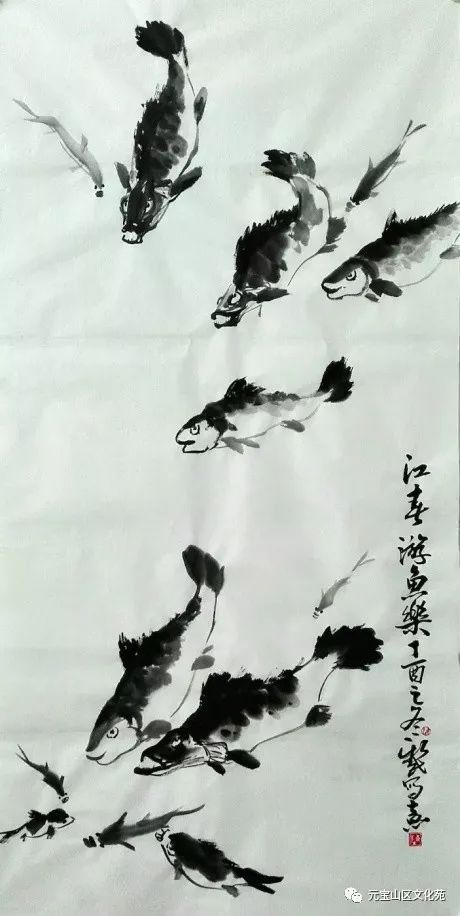 江春游鱼樂丁酉之冬
写意
元宝山区文化苑